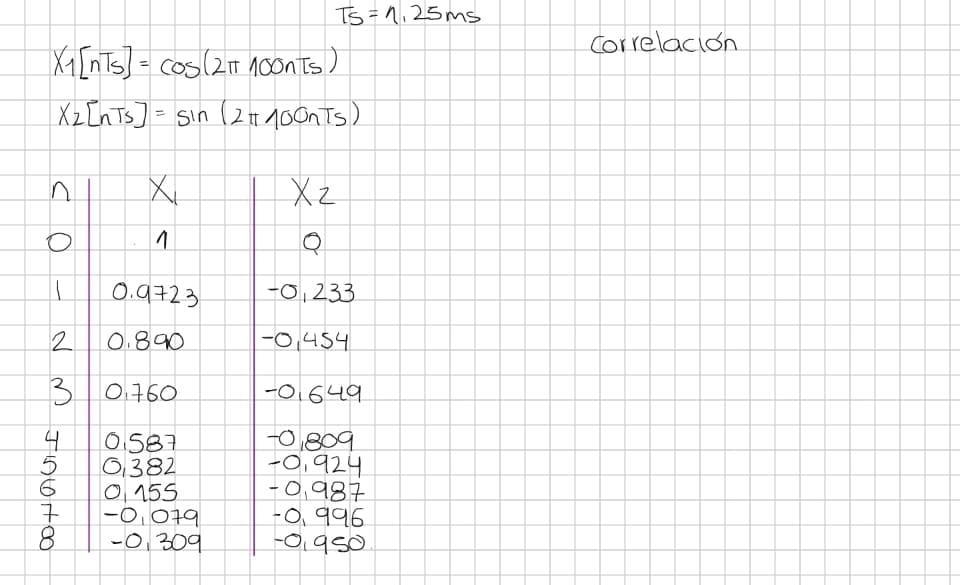 Ts = 1,25ms
Correlación
X1[nTs] = cos(2π 100nTs)
X2[nTs] = sin (2π 100nTs)
n X1 X2
0 1 0
1 0.9723 -0,233
2 0.890 -0,454
3 0,760 -0,649
4 0,587 -0,809
5 0,382 -0,924
6 0,155 -0,987
7 -0,079 -0,996
8 -0,309 -0,950